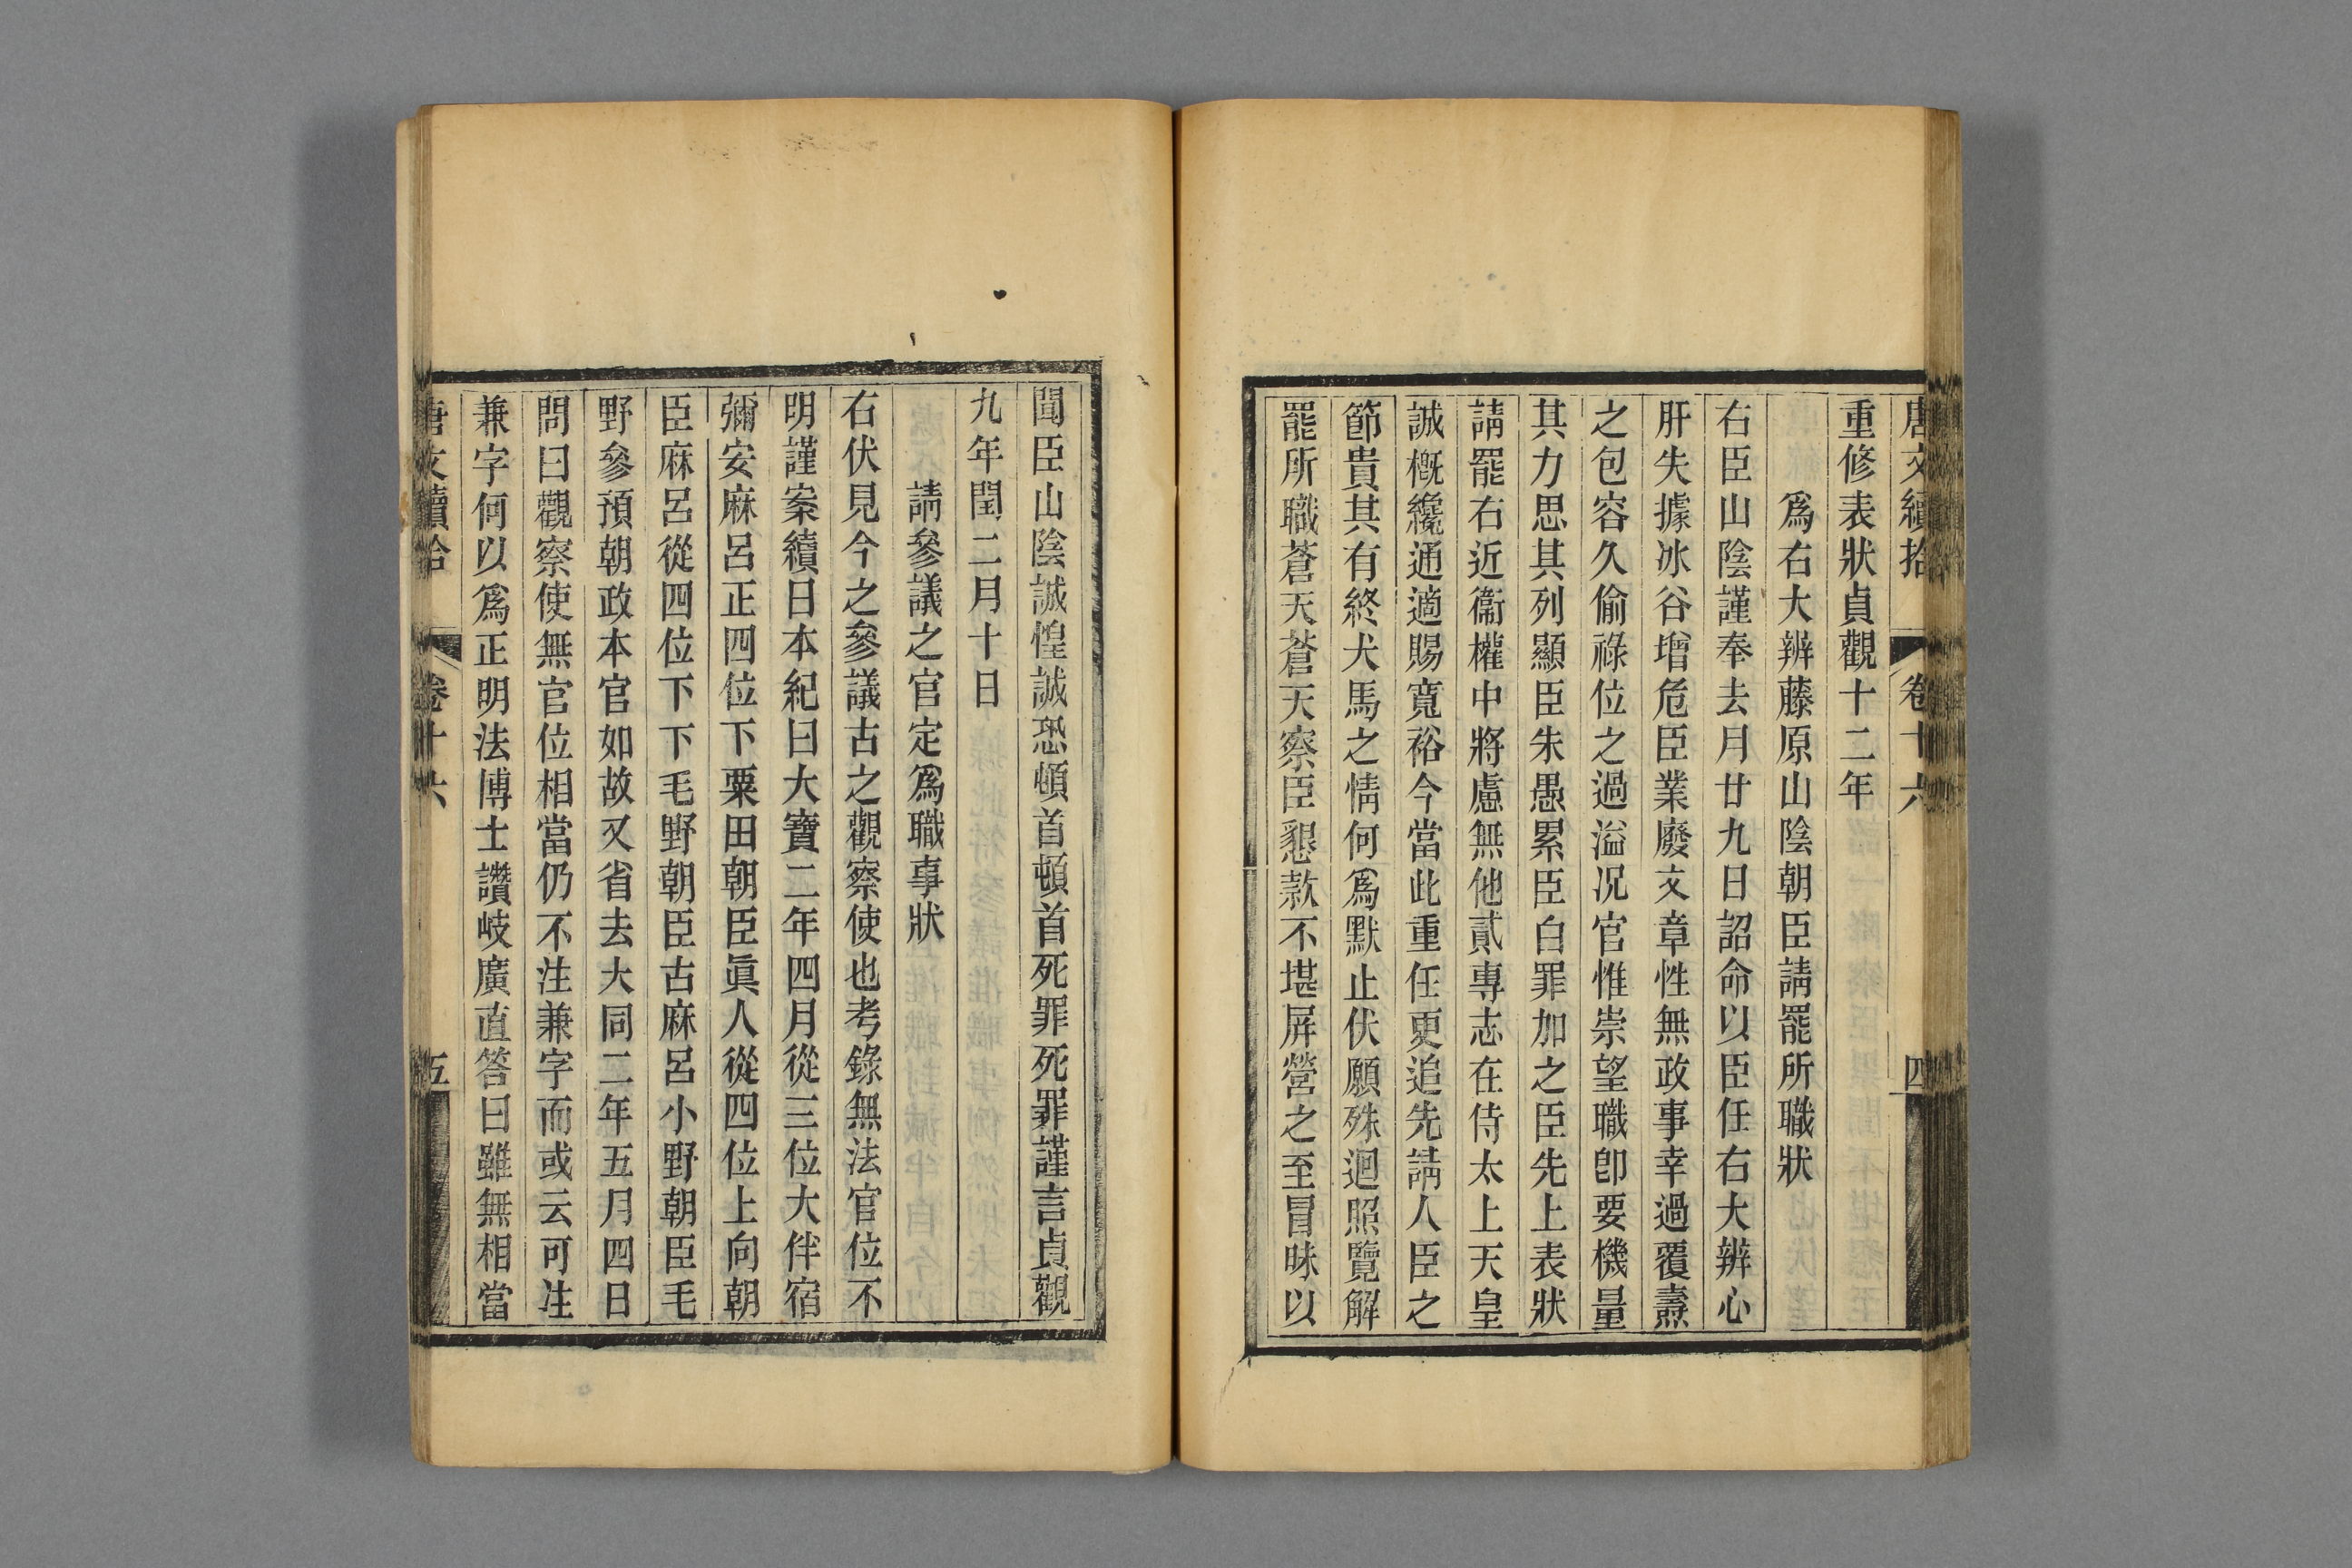 唐文續拾 卷十六 四
重修表狀貞觀十二年
爲右大辨藤原山陰朝臣請罷所職狀
右臣山陰謹奉去月廿九日詔命以臣任右大辨心
肝失據冰谷增危臣業廢文章性無政事幸過覆燾
之包容久偷祿位之過溢况官惟崇望職卽要機量
其力思其列顯臣朱愚累臣白罪加之臣先上表狀
請罷右近衞權中將慮無他貳專志在侍太上天皇
誠槪纔通適賜寬裕今當此重任更追先請人臣之
節貴其有終犬馬之情何爲默止伏願殊迴照覽解
罷所職蒼天蒼天察臣懇款不堪屏營之至冒昧以
聞臣山陰誠惶誠恐頓首頓首死罪死罪謹言貞觀
九年閏二月十日
請參議之官定爲職事狀
右伏見今之參議古之觀察使也考錄無法官位不
明謹案續日本紀曰大寶二年四月從三位大伴宿
彌安麻呂正四位下粟田朝臣眞人從四位上向朝
臣麻呂從四位下下毛野朝臣古麻呂小野朝臣毛
野參預朝政本官如故又省去大同二年五月四日
問曰觀察使無官位相當仍不注兼字而或云可注
兼字何以爲正明法博士讚岐廣直答曰雖無相當
唐文續拾 卷十六 五